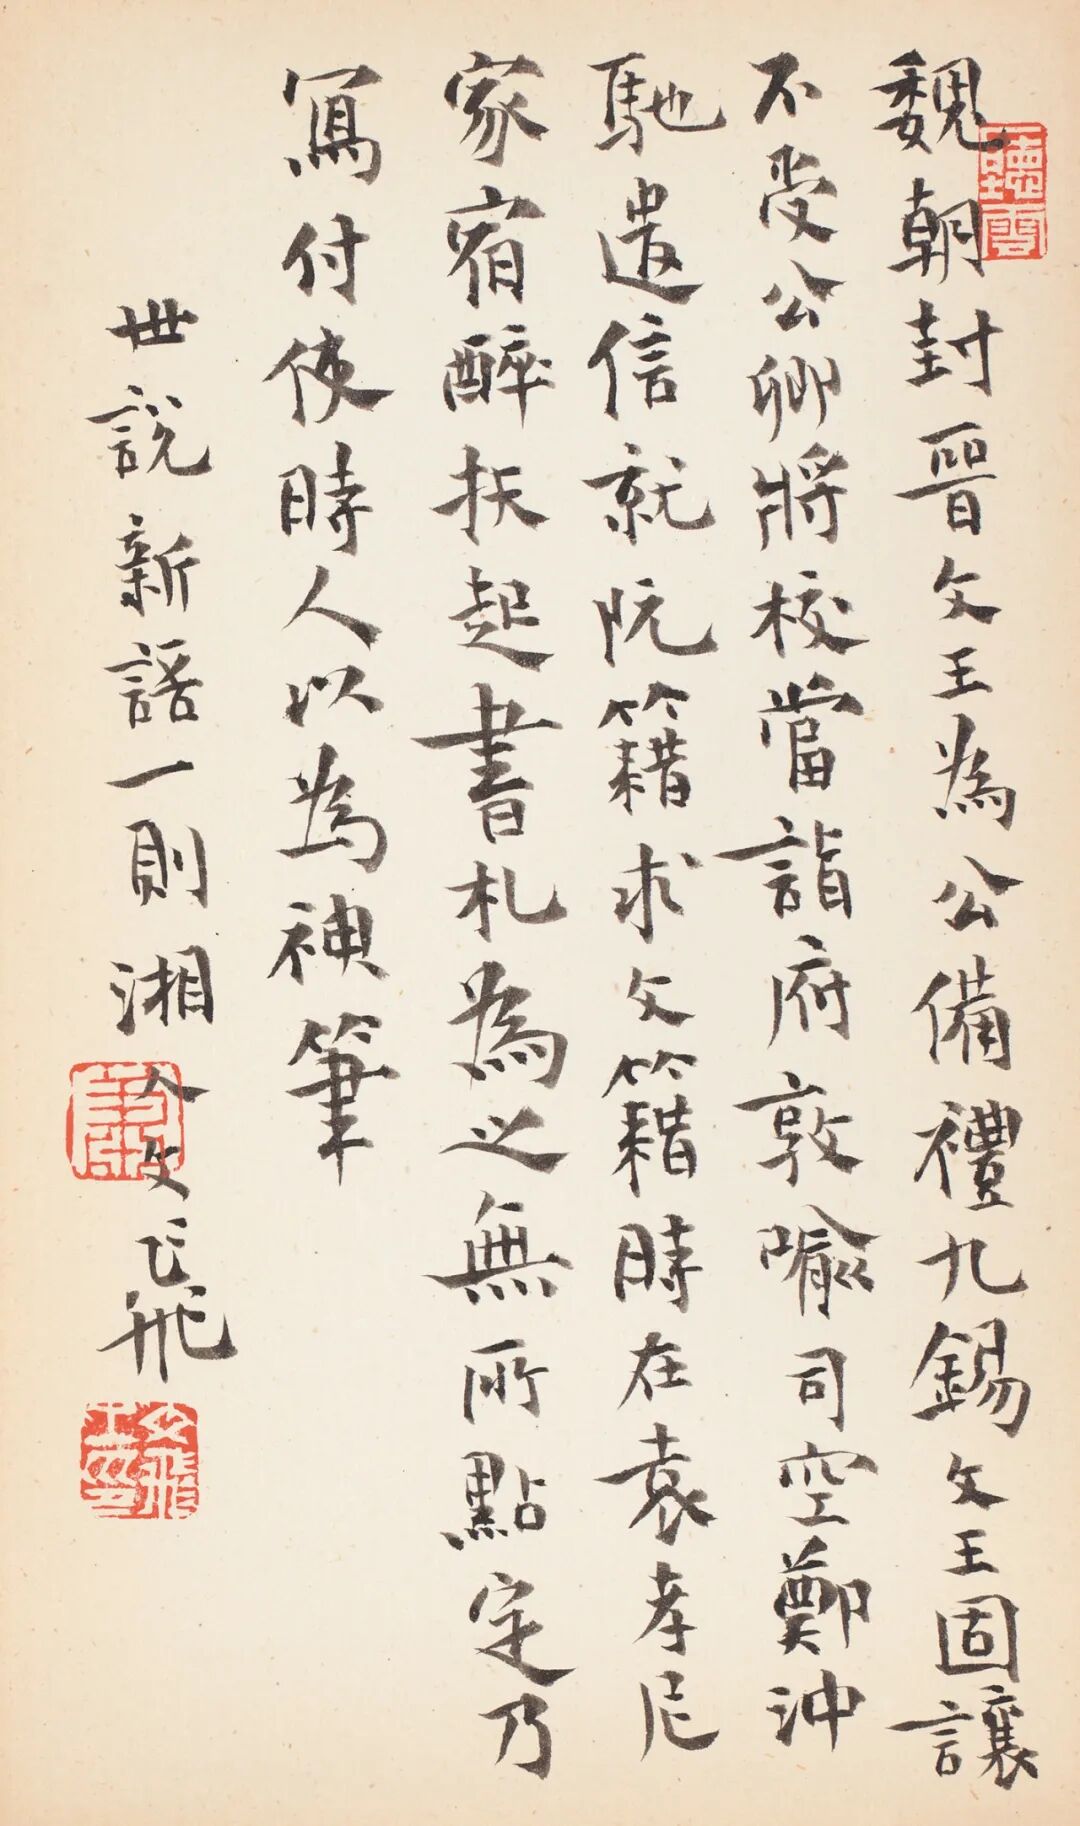 魏朝封晉文王為公備禮九錫文王固讓
不受公卿將校當詣府敦喻司空鄭沖
馳遣信就阮籍求文籍時在袁孝尼
家宿醉扶起書札為之無所點定乃
寫付使時人以為神筆
世說新語一則湘人文飛